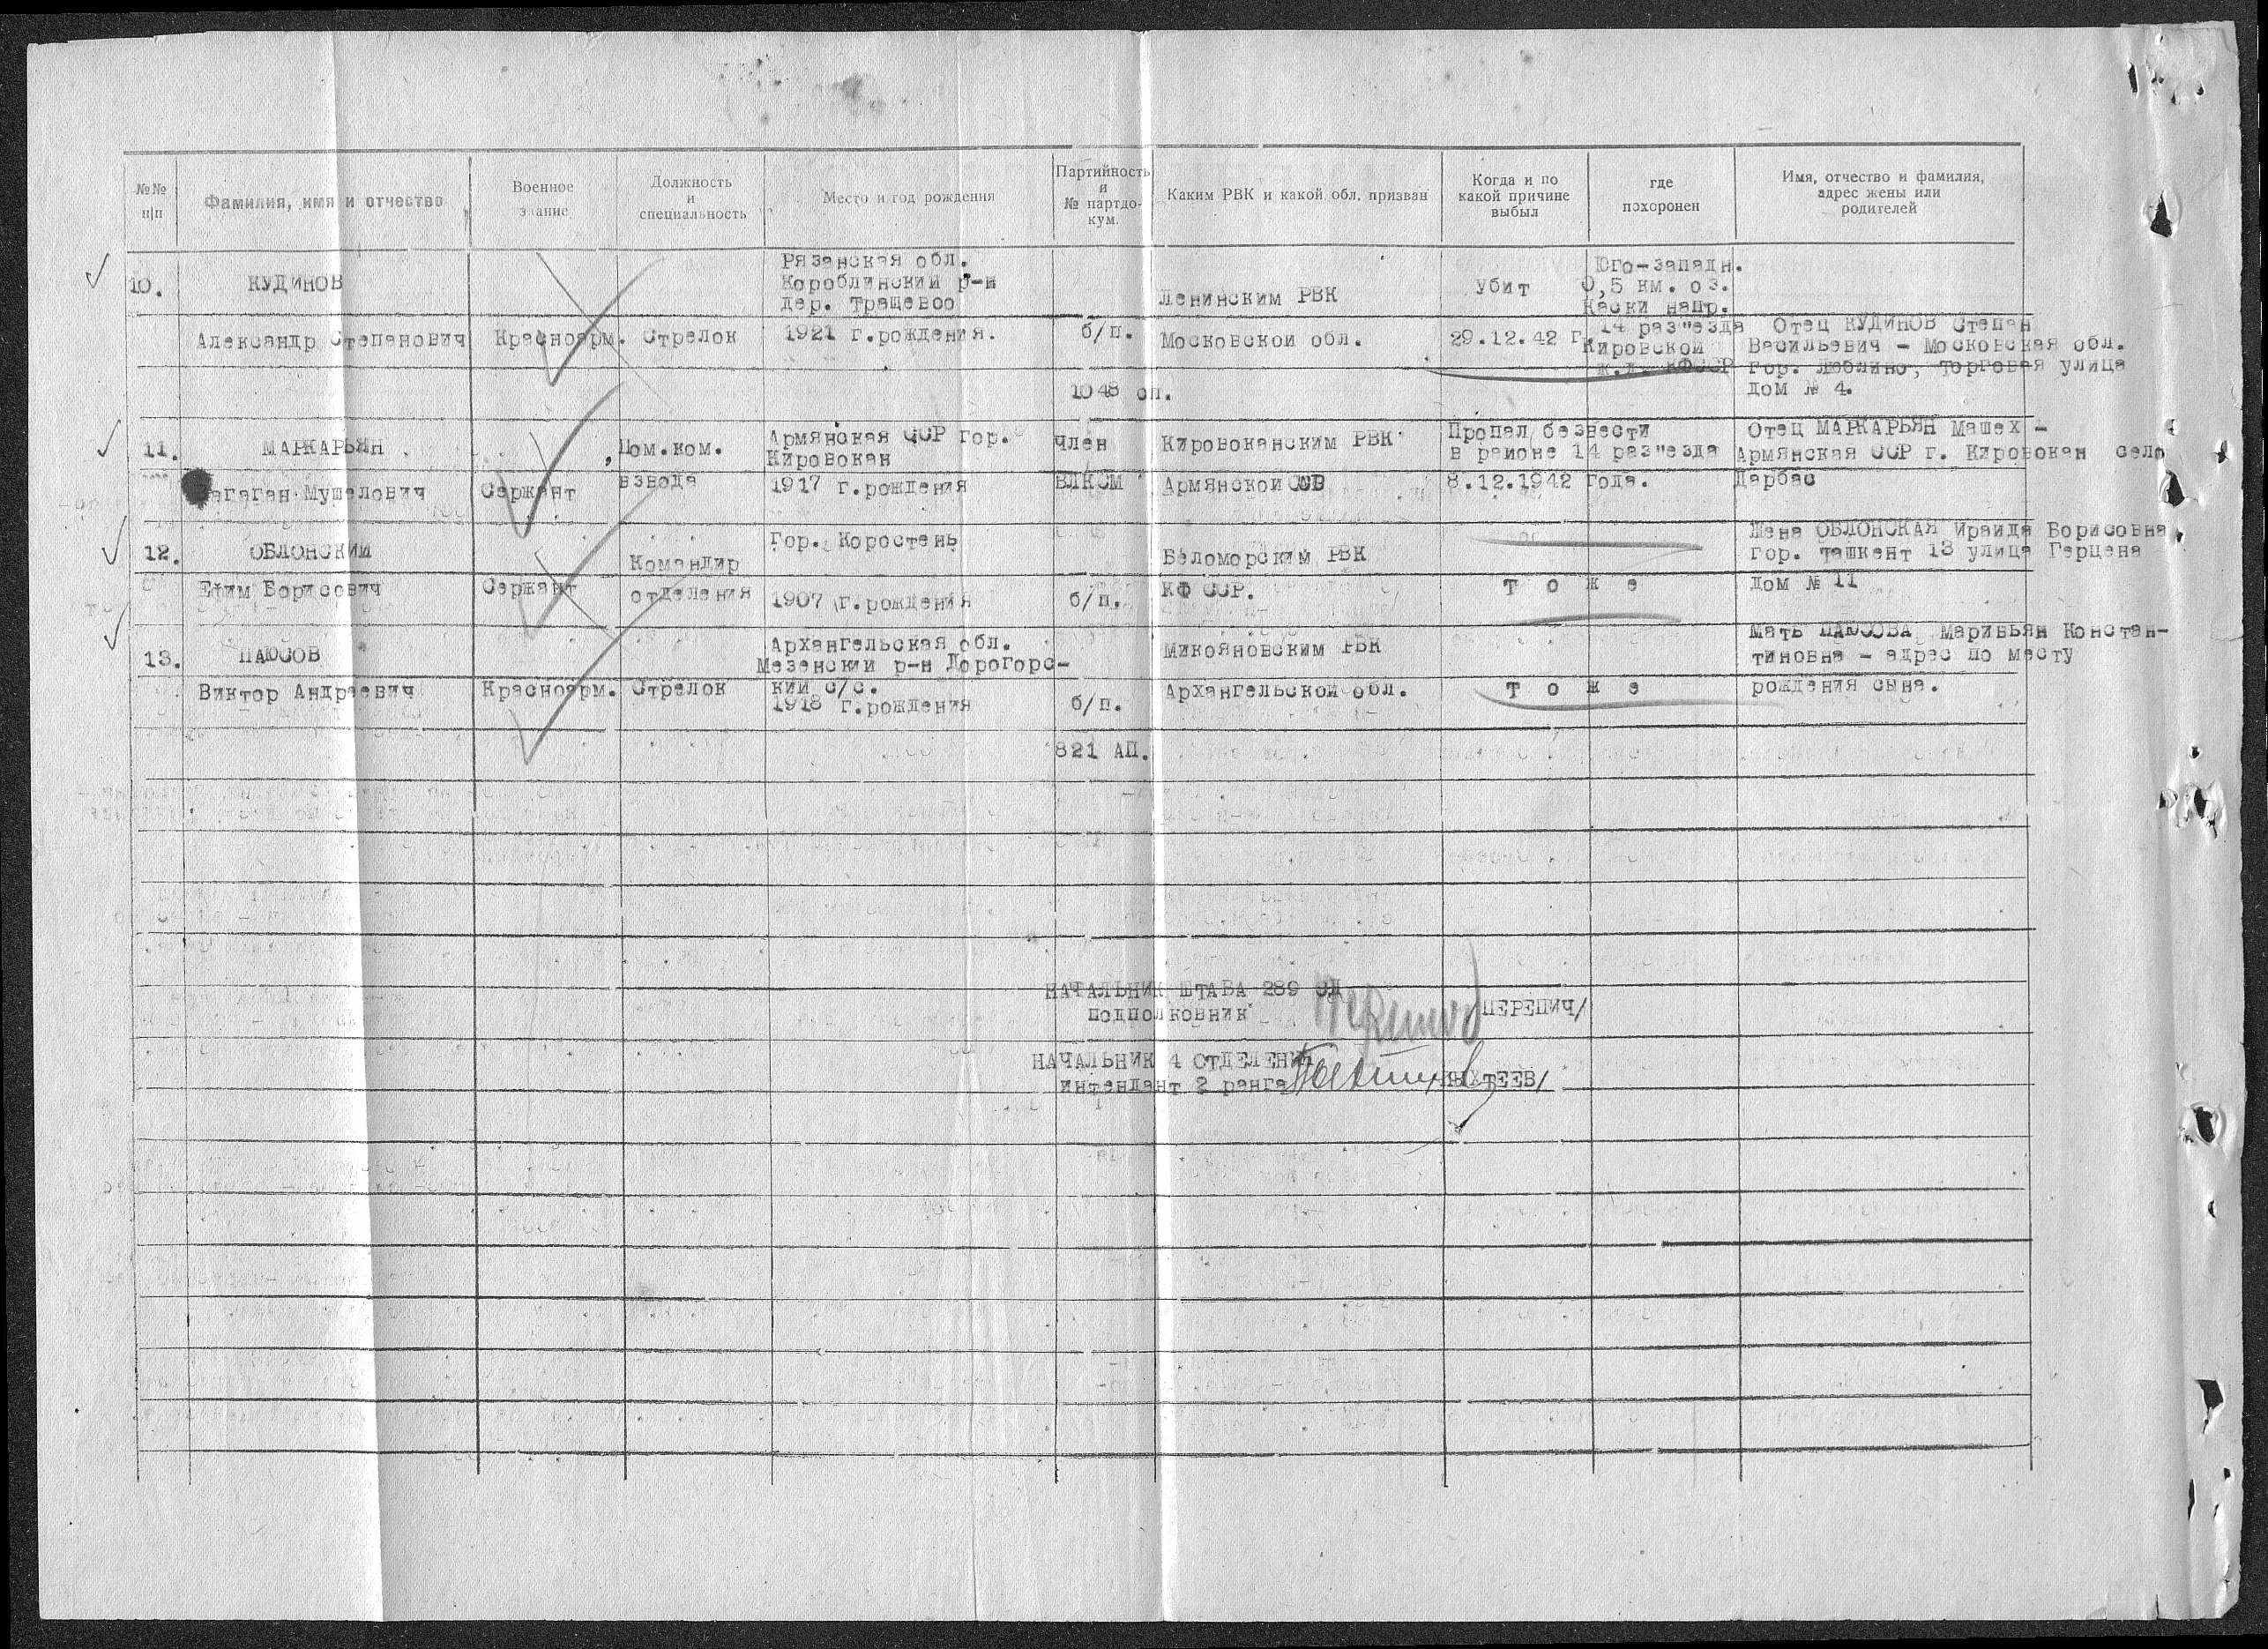 №№ п|п
Фамилия, имя и отчество
Военное звание
Должность и специальность
Место и год рождения
Партийность и № партдокум.
Каким РВК и какой обл. призван
Когда и по какой причине выбыл
где похоронен
Имя, отчество и фамилия, адрес жены или родителей
10.
КУДИНОВ
Александр Степанович
Красноарм.
Стрелок
Рязанская обл.
Кораблинский р-н
дер. Тращевоо
1921 г.рождения.
б/п.
Ленинским РВК
Московской обл.
Убит
29.12.42 г.
Юго-западн.
0,5 км. оз.
Каски напр.
14 раз"езда
Кировской
ж.д. КФССР
Отец КУДИНОВ Степан
Васильевич - Московская обл.
гор. Люблино, Торговая улица
дом № 4.
1048 сп.
11.
МАРКАРЬЯН
Вагаган Мушелович
Сержант
Пом.ком.
взвода
Армянская ССР гор.
Кировокан
1917 г.рождения
Член
ВЛКСМ
Кировоканским РВК
Армянской
Пропал безвести
в районе 14 раз"езда
8.12.1942 года.
Отец МАРКАРЬЯН Машех -
Армянская ССР г. Кировокан село
Дарбас
12.
ОБЛОНСКИЙ
Ефим Борисович
Сержант
Командир
отделения
Гор. Коростень
1907 г.рождения
б/п.
Беломорским РВК
КФ ССР.
т о ж е
Жена ОБЛОНСКАЯ Ираида Борисовна
гор. Ташкент 13 улица Герцена
дом № 11
13.
ПАЮСОВ
Виктор Андреевич
Красноарм.
Стрелок
Архангельская обл.
Мезенский р-н Дорогорс-
кий с/с.
1918 г.рождения
б/п.
Микояновским РВК
Архангельской обл.
т о ж е
Мать ПАЮСОВА Маривьян Констан-
тиновна - адрес по месту
рождения сына.
821 АП.
НАЧАЛЬНИК ШТАБА 289 СД
подполковник
ПЕРЕПИЧ/
НАЧАЛЬНИК 4 ОТДЕЛЕНИЯ
интендант 2 ранга